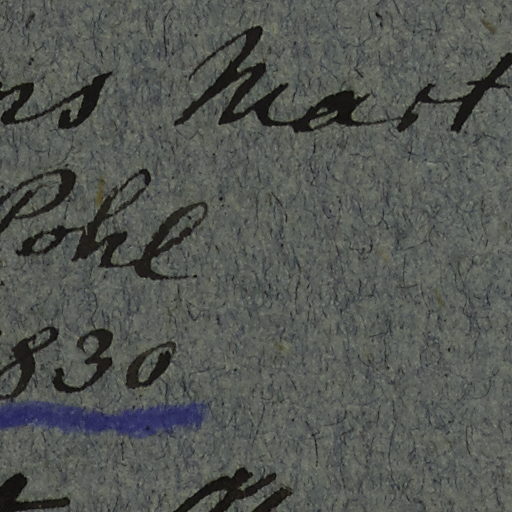 ns Mart
Pohl
830